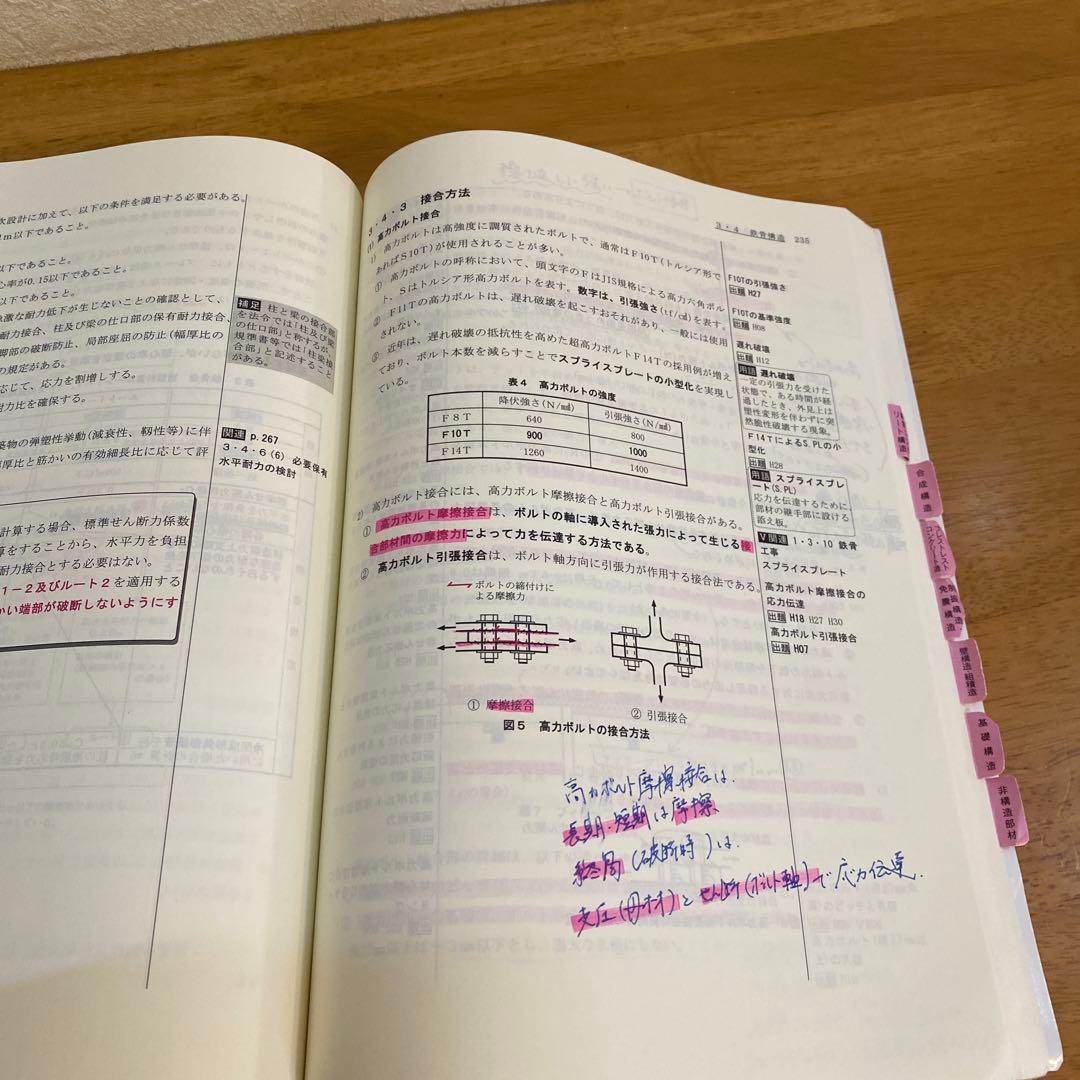 次設計に加えて、以下の条件を満足する必要がある。
1m以下であること。
以下であること。
心率が0.15以下であること。
以下であること。
急激な耐力低下が生じないことの確認として、
耐力接合、柱及び梁の仕口部の保有耐力接合、
脚部の破断防止、局部座屈の防止(幅厚比の
の規定がある。
応じて、応力を割増しする。
耐力比を確保する。
築物の弾塑性挙動(減衰性、靱性等)に伴
幅厚比と筋かいの有効細長比に応じて評
計算する場合、標準せん断力係数
算をすることから、水平力を負担
耐力接合とする必要はない。
1-2及びルート2を適用する
かい端部が破断しないようにす
補足 柱と梁の接合部
を法令では「柱及び梁
の仕口部」と称するが、
規準書等では「柱梁接
合部」と記述すること
がある。
関連 p.267
3・4・6(6) 必要保有
水平耐力の検討
3・4 鉄骨構造 235
3・4・3 接合方法
(1) 高力ボルト接合
1) 高力ボルトは高強度に調質されたボルトで、通常はF10T(トルシア形で
あればS10T)が使用されることが多い。
① 高力ボルトの呼称において、頭文字のFはJIS規格による高力六角ボル
ト、Sはトルシア形高力ボルトを表す。数字は、引張強さ(tf/c㎡)を表す。
② F11Tの高力ボルトは、遅れ破壊を起こすおそれがあり、一般には使用
されない。
③ 近年は、遅れ破壊の抵抗性を高めた超高力ボルトF14Tの採用例が増え
ており、ボルト本数を減らすことでスプライスプレートの小型化を実現し
ている。
表4 高力ボルトの強度
降伏強さ(N/m㎡) 引張強さ(N/m㎡)
F8T 640 800
F10T 900 1000
F14T 1260 1400
2) 高力ボルト接合には、高力ボルト摩擦接合と高力ボルト引張接合がある。
① 高力ボルト摩擦接合は、ボルトの軸に導入された張力によって生じる接
合部材間の摩擦力によって力を伝達する方法である。
② 高力ボルト引張接合は、ボルト軸方向に引張力が作用する接合法である。
ボルトの締付けに
よる摩擦力
① 摩擦接合
② 引張接合
図5 高力ボルトの接合方法
高力ボルト摩擦接合は、
長期・短期は摩擦、
終局(破断時)は、
支圧(母材)とせん断(ボルト軸)で応力伝達.
F10Tの引張強さ
出題 H27
F10Tの基準強度
出題 H08
遅れ破壊
出題 H12
用語 遅れ破壊
一定の引張力を受けた
状態で、ある時間が経
過したとき、外見上は
塑性変形を伴わずに突
然脆性破壊する現象。
F14TによるS.PLの小
型化
出題 H28
用語 スプライスプレ
ート(S.PL)
応力を伝達するために、
部材の継手部に設ける
添え板。
V関連 1・3・10 鉄骨
工事
スプライスプレート
高力ボルト摩擦接合の
応力伝達
出題 H18 H27 H30
高力ボルト引張接合
出題 H07
リート構造
合成構造
プレストレスト
コンクリート構造
免震構造・
制振構造
壁構造・組積造
基礎構造
非構造部材